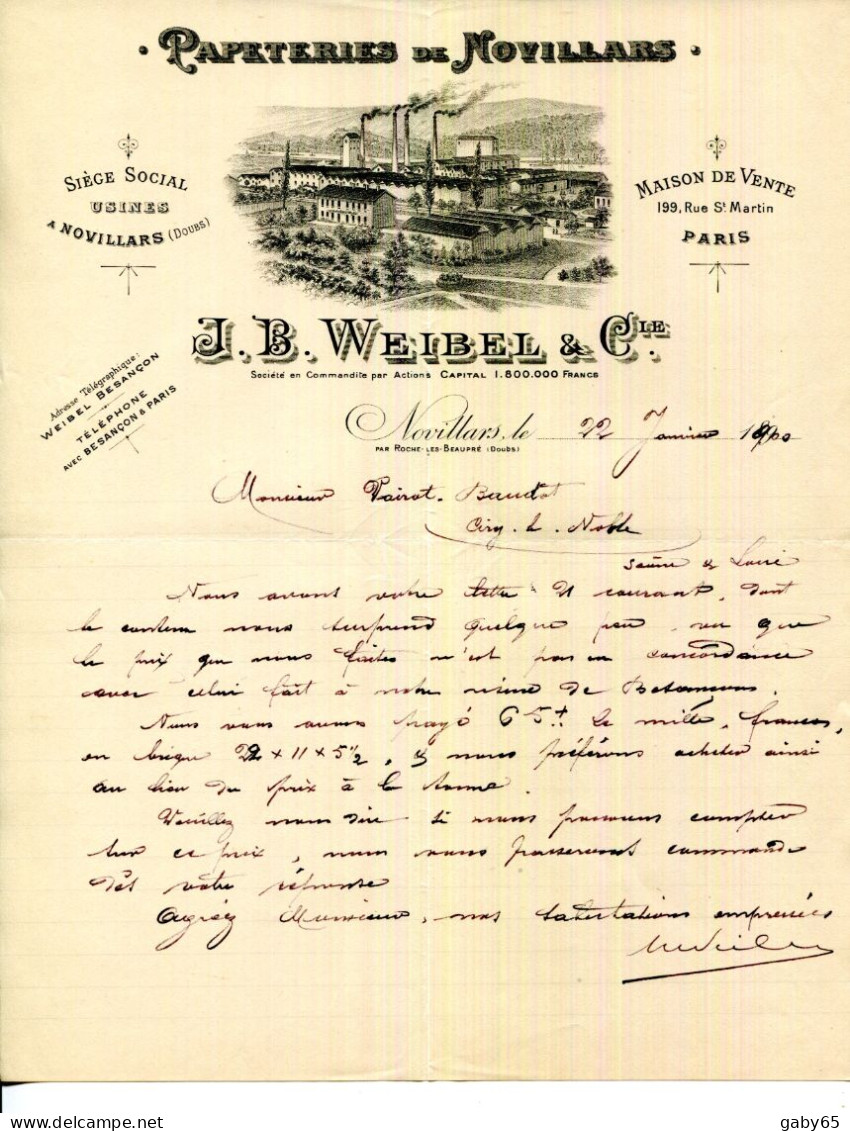 PAPETERIES DE NOVILLARS
SIÈGE SOCIAL
USINES
A NOVILLARS (DOUBS)
MAISON DE VENTE
199, RUE St. MARTIN
PARIS
J. B. WEIBEL & CIE.
Société en Commandite par Actions CAPITAL 1.800.000 FRANCS
Adresse Télégraphique:
WEIBEL BESANÇON
TÉLÉPHONE
AVEC BESANÇON & PARIS
Novillars, le 22 Janvier 1900
PAR ROCHE-LES-BEAUPRÉ (DOUBS)
Monsieur Pairot-Baudot
Ciry-le-Noble
Saône & Loire
Nous avons votre lettre 21 courant, dont
le contenu nous surprend quelque peu, vu que
le prix que nous faites n'est pas en concordance
avec celui fait à notre usine de Besançon.
Nous vous avons payé 65f le mille, franco,
en brique 22 x 11 x 5 1/2, & nous préférons acheter ainsi
au lieu du prix à la tonne.
Veuillez nous dire si nous pouvons compter
sur ce prix, nous vous passerons commande
dès votre réponse
Agréez Monsieur, nos salutations empressées
Weibel
gaby65